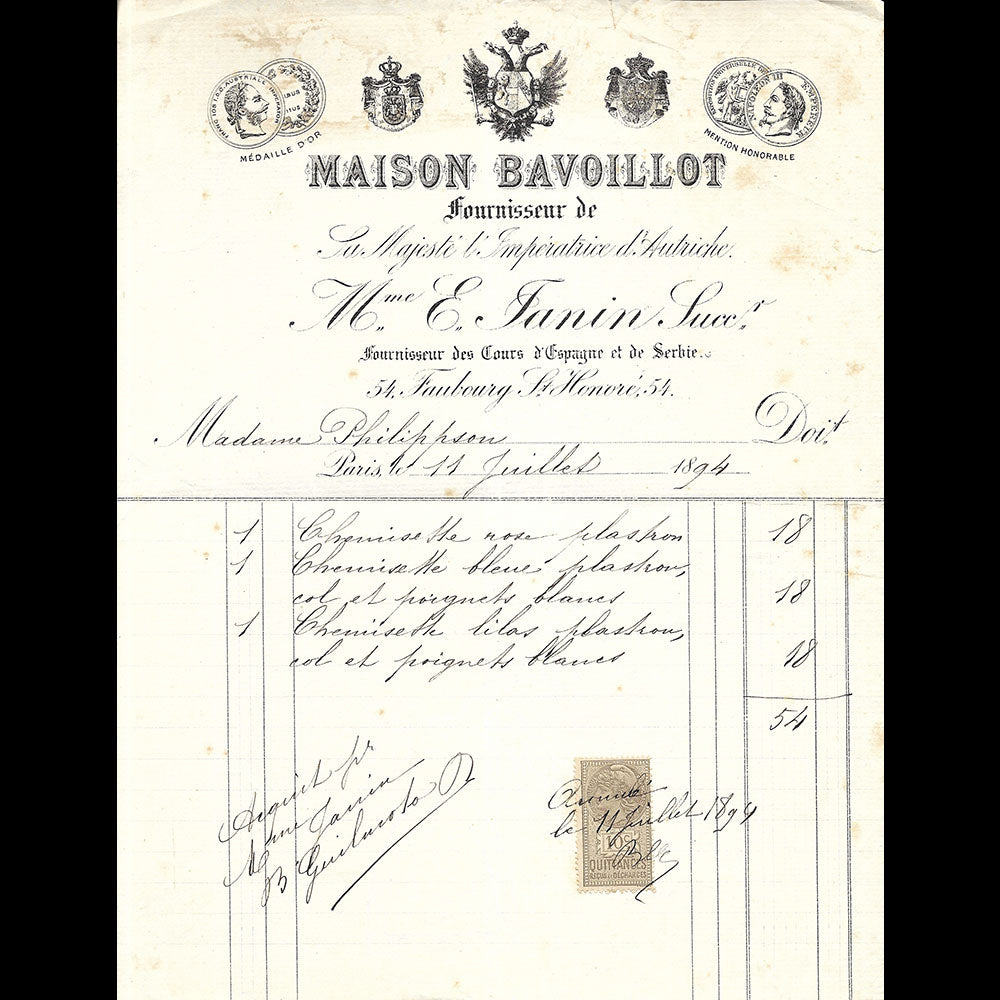 FRANC IOS I D G AUSTRIAE IMPERATOR
MÉDAILLE D'OR
EXPOSITION UNIVERSELLE DE
NAPOLEON III EMPEREUR
MENTION HONORABLE
MAISON BAVOILLOT
Fournisseur de
Sa Majesté l'Impératrice d'Autriche.
Mme E. Janin Succr
Fournisseur des Cours d'Espagne et de Serbie.
54, Faubourg St Honoré, 54.
Madame Philippson Doit
Paris, le 11 Juillet 1894
1 Chemisette rose plastron 18
1 Chemisette bleue plastron,
col et poignets blancs 18
1 Chemisette lilas plastron,
col et poignets blancs 18
54
Acquit pr
Mme Janin
B Guilmoto
Annulé
le 11 Juillet 1894
10c
QUITTANCES
REÇUS ET DÉCHARGES